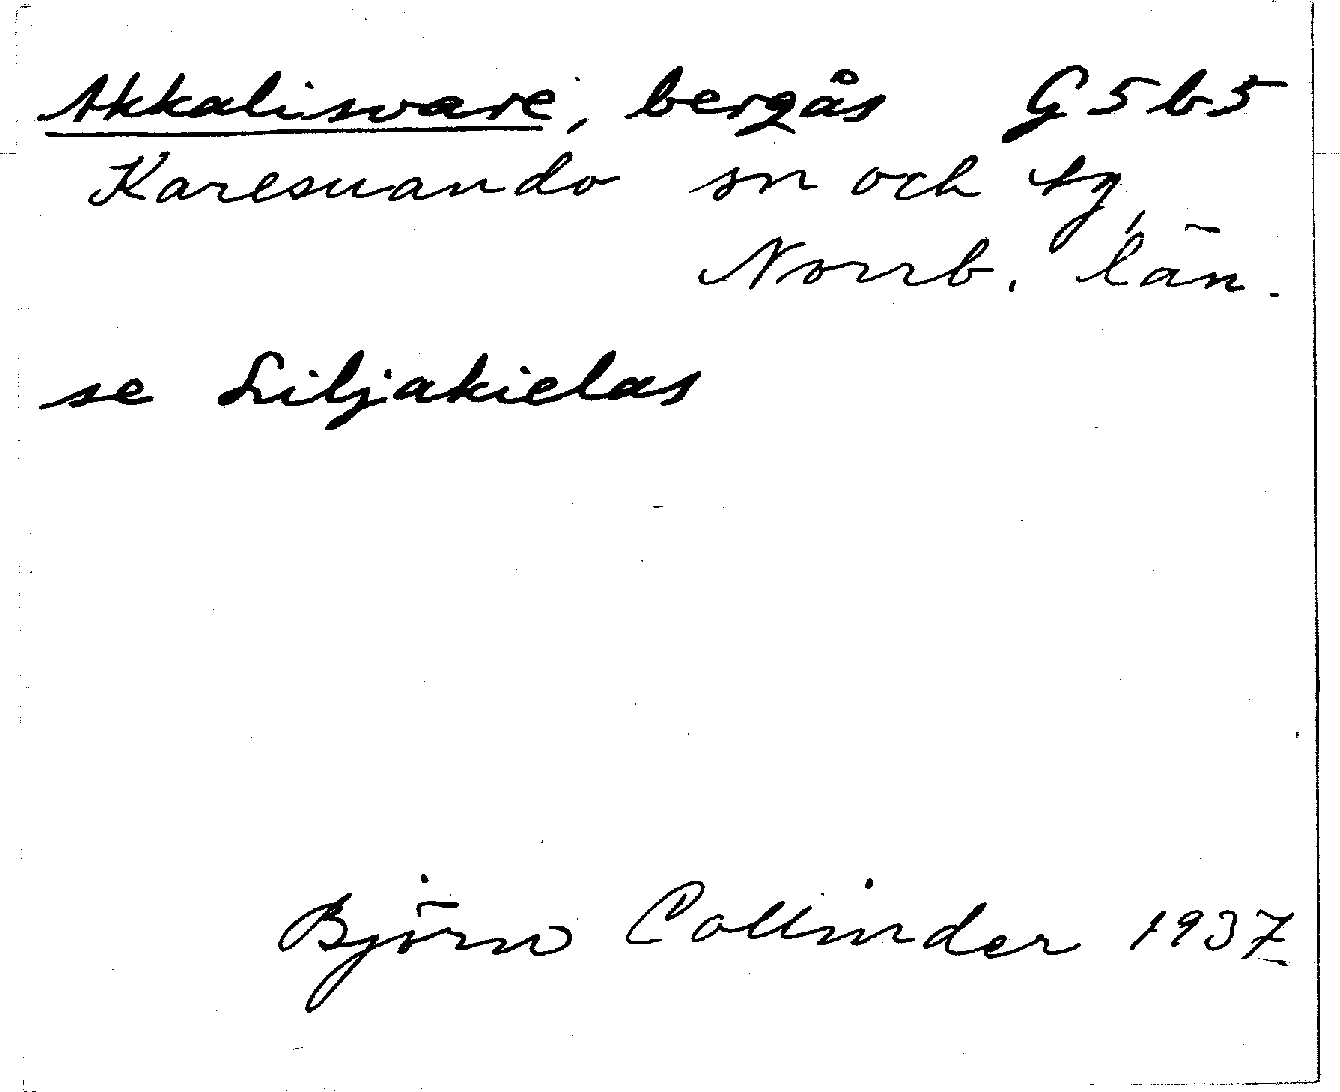 Akkalisvare, bergås G5b5
Karesuando sn och tg,
Norrb. län.
se Liljakielas
Björn Collinder 1937